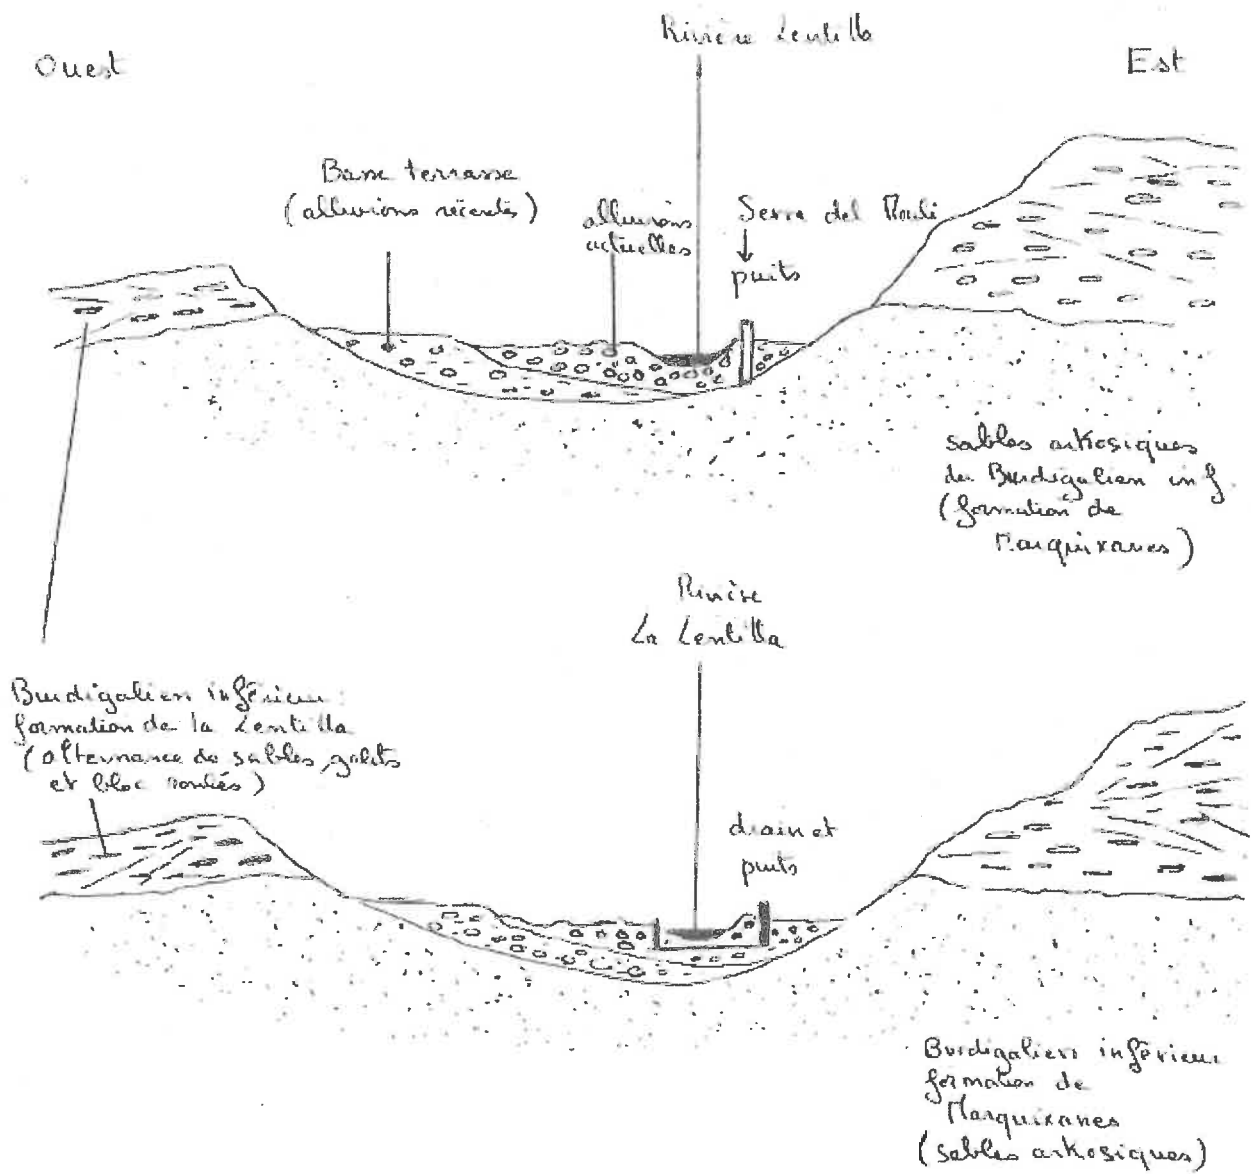 Rivière Lentilla
Ouest
Est
Basse terrasse
(alluvions récentes)
alluvions
actuelles
Serra del Mouli
puits
sables arkosiques
du Burdigalien inf
(formation de
Marquixanes)
Rivière
La Lentilla
Burdigalien inférieur :
formation de la Lentilla
(alternance de sables, galets
et bloc roulés)
drain et
puits
Burdigalien inférieur
formation de
Marquixanes
(sables arkosiques)